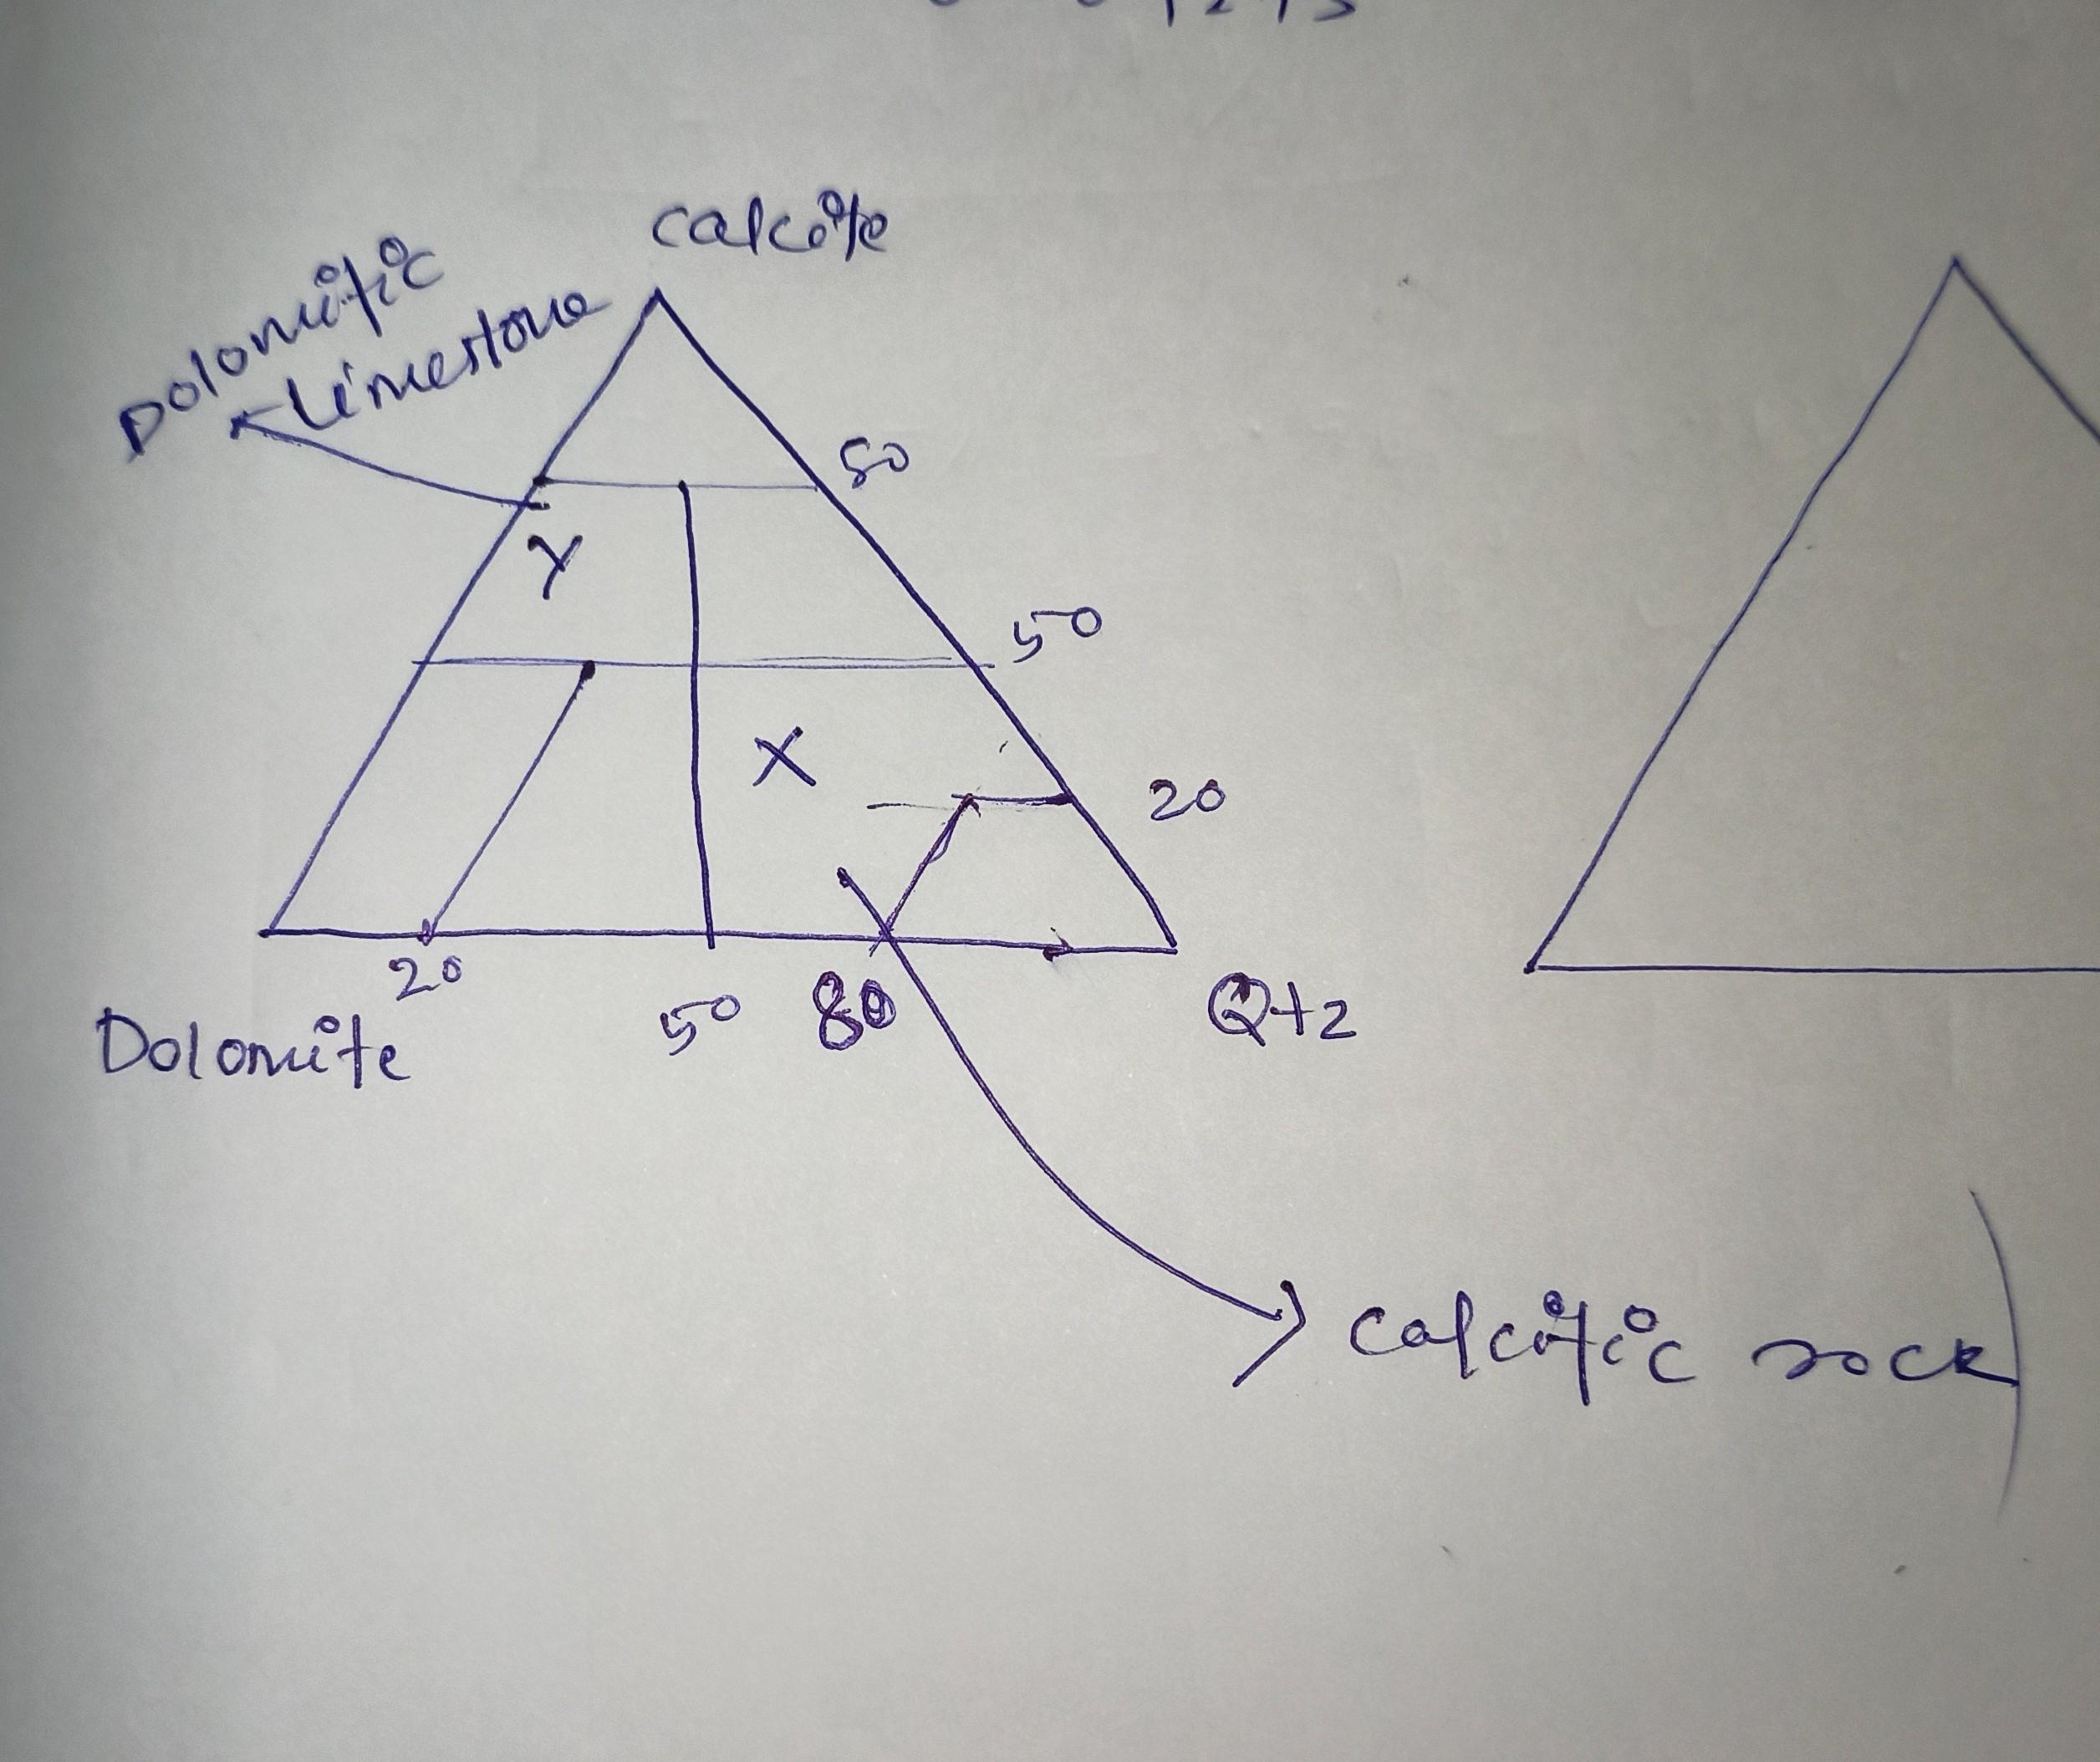 calcite
Dolomitic
Limestone
80
Y
50
X
20
20
50
80
Qtz
Dolomite
Calcitic rock